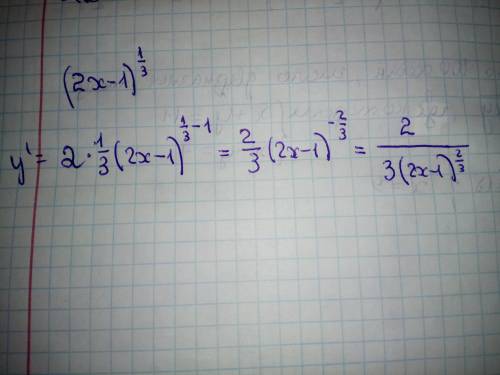 (2x-1)^{1/3}
y' = 2 · 1/3 (2x-1)^{1/3 - 1} = 2/3 (2x-1)^{-2/3} = 2 / 3(2x-1)^{2/3}